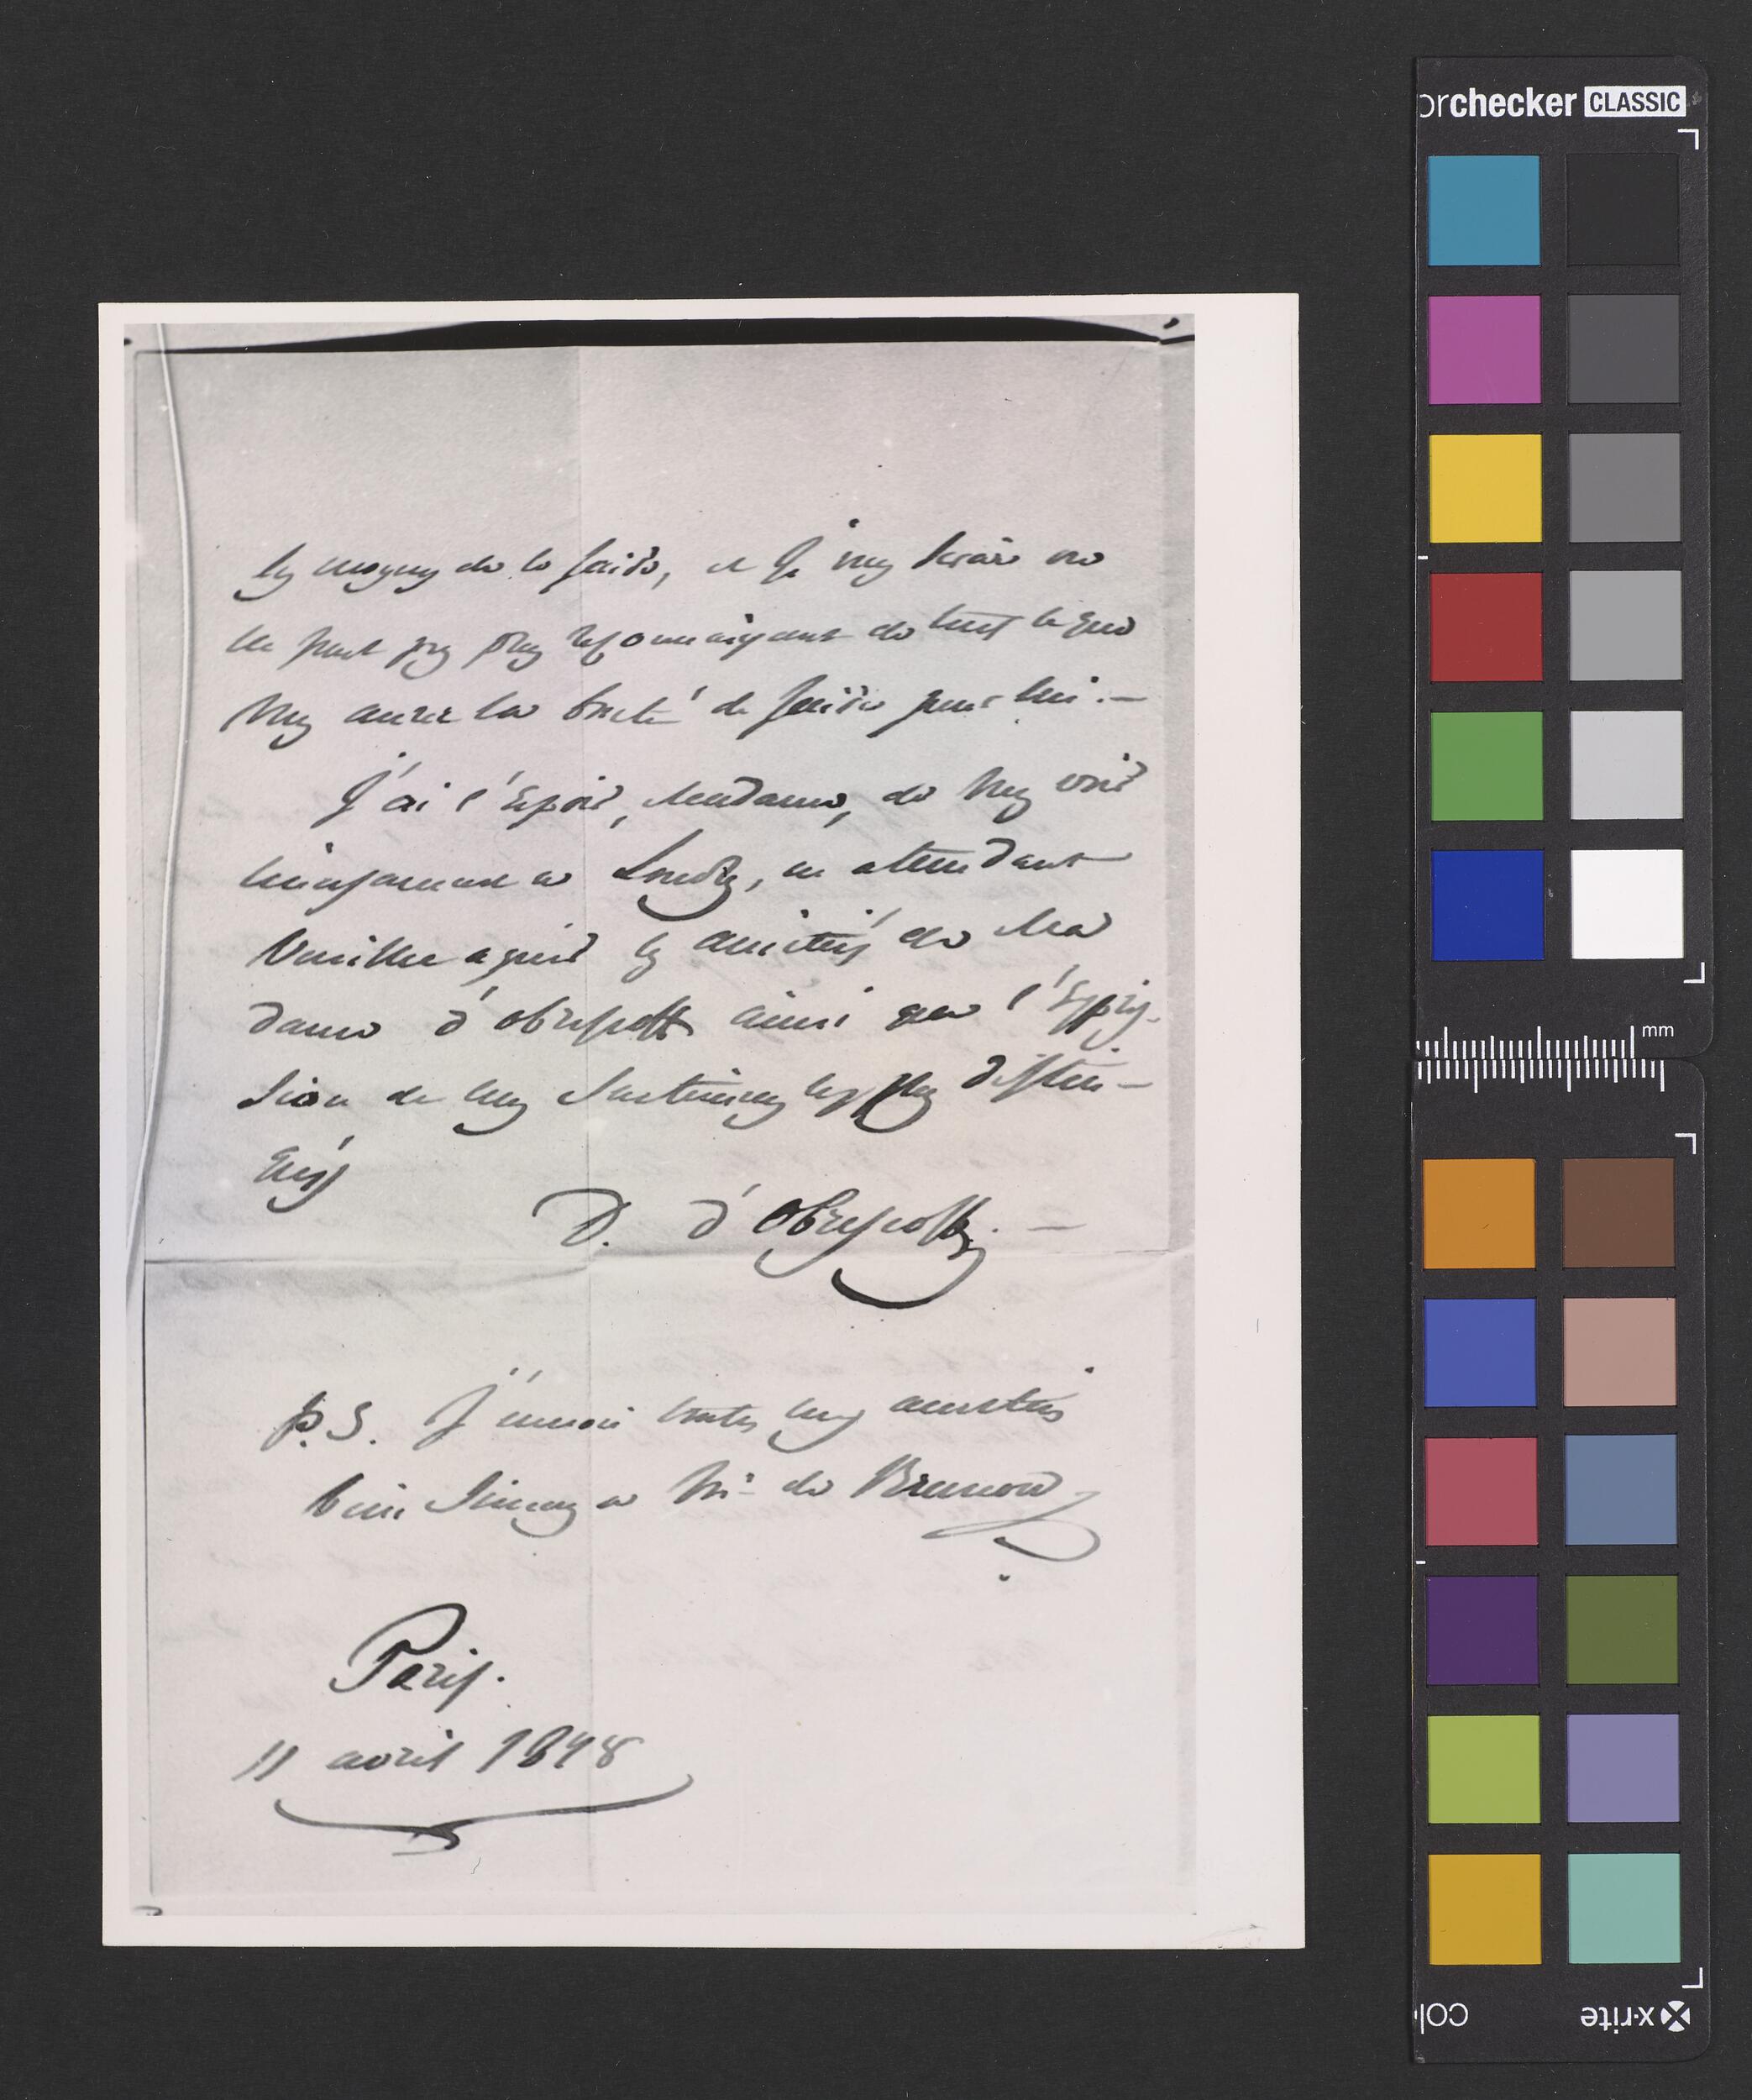 les moyens de le faire, et je vous serais on
ne peut pas plus reconnaissant de tout ce que
vous aurez la bonté de faire pour lui. —
J'ai l'Espoir, Madame, de vous voir
a Londres, en attendant
Veuillez agréer les amitiés de Ma
dame d'obrescoff ainsi que l'Expres-
sion de mes Sentimens les plus distin-
gués
D. d'Obrescoff. —
p.S. J'envoie toutes mes amitiés
bien Sinceres a Mr de Brunow
Paris.
11 avril 1848
orchecker CLASSIC
mm
x-rite
col